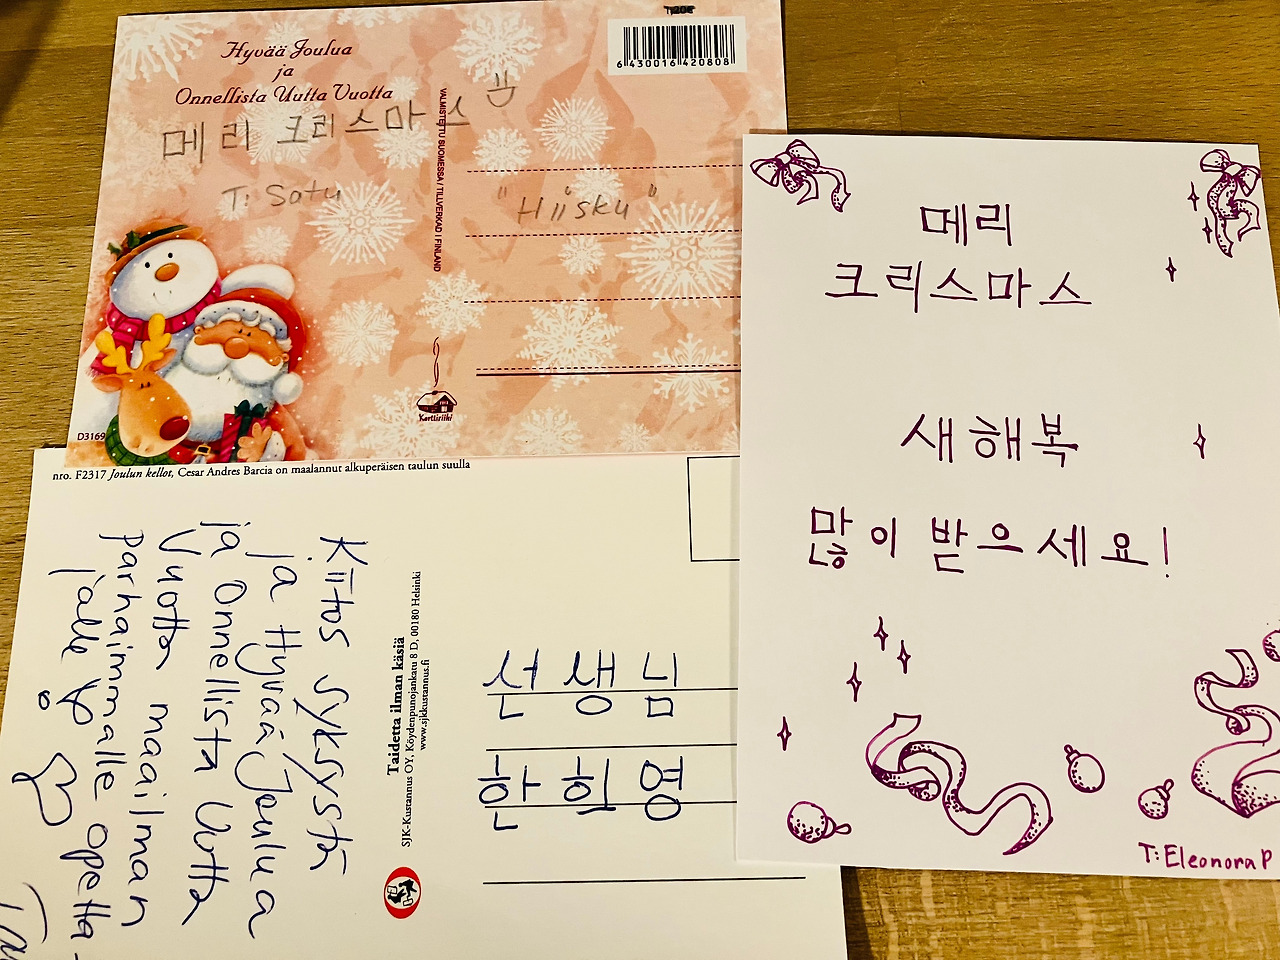 Hyvää Joulua
ja
Onnellista Uutta Vuotta
메리 크리스마스
T: Satu
"Hiisku"
VALMISTETTU SUOMESSA / TILLVERKAD I FINLAND
6 430016 420808
Korttisiiki
D3169
메리
크리스마스
새해복
많이 받으세요!
T: Eleonora P
nro. F2317 Joulun kellot, Cesar Andres Barcia on maalannut alkuperäisen taulun suulla
Kiitos syksystä
ja Hyvää Joulua
ja Onnellista Uutta
Vuotta maailman
parhaimmalle opetta-
jalle
Taidetta ilman käsiä
SJK-Kustannus OY, Köydenpunojankatu 8 D, 00180 Helsinki
www.sjkkustannus.fi
선생님
한희영